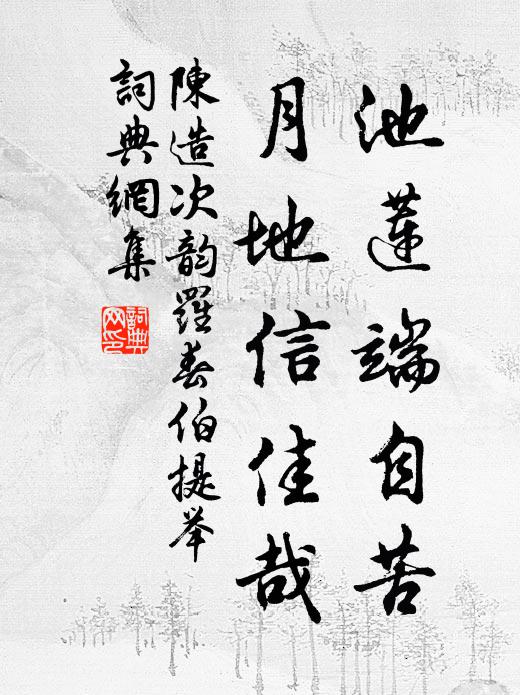 池蓮端自苦
月地信佳哉
陳造次韵羅春伯提举
詞典網集
詞典網印